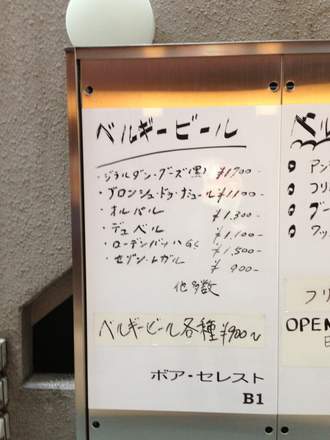 ベルギービール
・ジラルダン・グーズ(黒) ¥1700
・ブロンシュ・ドゥ・ナミュール ¥1100
・オルバル ¥1,300-
・デュベル ¥1,100-
・ローデンバッハG.C ¥1,500-
・セゾン・レガル ¥900-
他多数
ベルギービール各種¥900〜
ボア・セレスト
B1
ベル
アン
フリ
ブー
フリ
OPEN